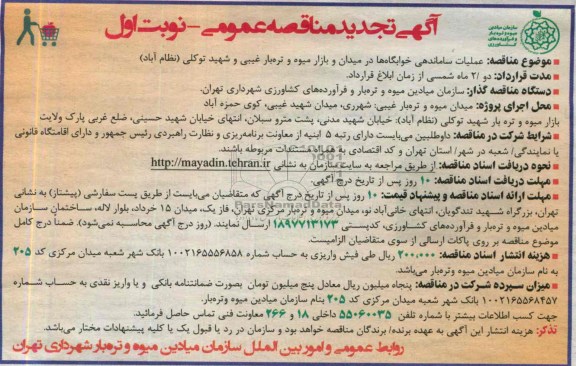 آگهی تجدید مناقصه عمومی - نوبت اول
سازمان میادین
میوه و تره‌بار
و فرآورده‌های
کشاورزی
موضوع مناقصه: عملیات ساماندهی خوابگاه‌ها در میدان و بازار میوه و تره‌بار غیبی و شهید توکلی (نظام آباد)
مدت قرارداد: دو /۲ ماه شمسی از زمان ابلاغ قرارداد.
دستگاه مناقصه گذار: سازمان میادین میوه و تره‌بار و فرآورده‌های کشاورزی شهرداری تهران.
محل اجرای پروژه: میدان میوه و تره‌بار غیبی: شهرری، میدان شهید غیبی، کوی حمزه آباد
بازار میوه و تره بار شهید توکلی (نظام آباد): خیابان شهید مدنی، پشت مترو سبلان، انتهای خیابان شهید حسینی، ضلع غربی پارک ولایت
شرایط شرکت در مناقصه: داوطلبین می‌بایست دارای رتبه ۵ ابنیه از معاونت برنامه‌ریزی و نظارت راهبردی رئیس جمهور و دارای اقامتگاه قانونی
یا نمایندگی/ شعبه در شهر/ استان تهران و کد اقتصادی به همراه مستندات مربوطه باشند.
نحوه دریافت اسناد مناقصه: از طریق مراجعه به سایت سازمان به نشانی http://mayadin.tehran.ir
مهلت دریافت اسناد مناقصه: ۱۰ روز پس از تاریخ درج آگهی.
مهلت ارائه اسناد مناقصه و پیشنهاد قیمت: ۱۰ روز پس از تاریخ درج آگهی که متقاضیان می‌بایست از طریق پست سفارشی (پیشتاز) به نشانی
تهران، بزرگراه شهید تندگویان، انتهای خانی‌آباد نو، میدان میوه و تره‌بار مرکزی تهران، فاز یک، میدان ۱۵ خرداد، بلوار لاله، ساختمان سازمان
میادین میوه و تره‌بار و فرآورده‌های کشاورزی، کدپستی ۱۸۹۷۷۱۳۱۷۳ ارسال نمایند. (روز درج آگهی محاسبه نمی‌شود). ضمناً درج کامل
موضوع مناقصه بر روی پاکات ارسالی از سوی متقاضیان الزامیست.
هزینه انتشار اسناد مناقصه: ۲۰۰,۰۰۰ ریال طی فیش واریزی به حساب شماره ۱۰۰۲۱۶۵۵۵۶۸۵۸ بانک شهر شعبه میدان مرکزی کد ۲۰۵
به نام سازمان میادین میوه وتره‌بار می‌باشد.
میزان سپرده شرکت در مناقصه: پنجاه میلیون ریال معادل پنج میلیون تومان بصورت ضمانتنامه بانکی و یا واریز نقدی به حساب شماره
۱۰۰۲۱۶۵۵۶۸۴۵۷ بانک شهر شعبه میدان مرکزی کد ۲۰۵ بنام سازمان میادین میوه وتره‌بار.
جهت کسب اطلاعات بیشتر با شماره تلفن ۵۵۰۶۰۰۳۵ داخلی ۱۸ و ۲۶۶ معاونت فنی تماس حاصل فرمائید.
تذکر: هزینه انتشار این آگهی به عهده برنده/ برندگان مناقصه خواهد بود و سازمان در رد یا قبول یک یا کلیه پیشنهادات مختار می‌باشد.
روابط عمومی و امور بین الملل سازمان میادین میوه و تره‌بار شهرداری تهران